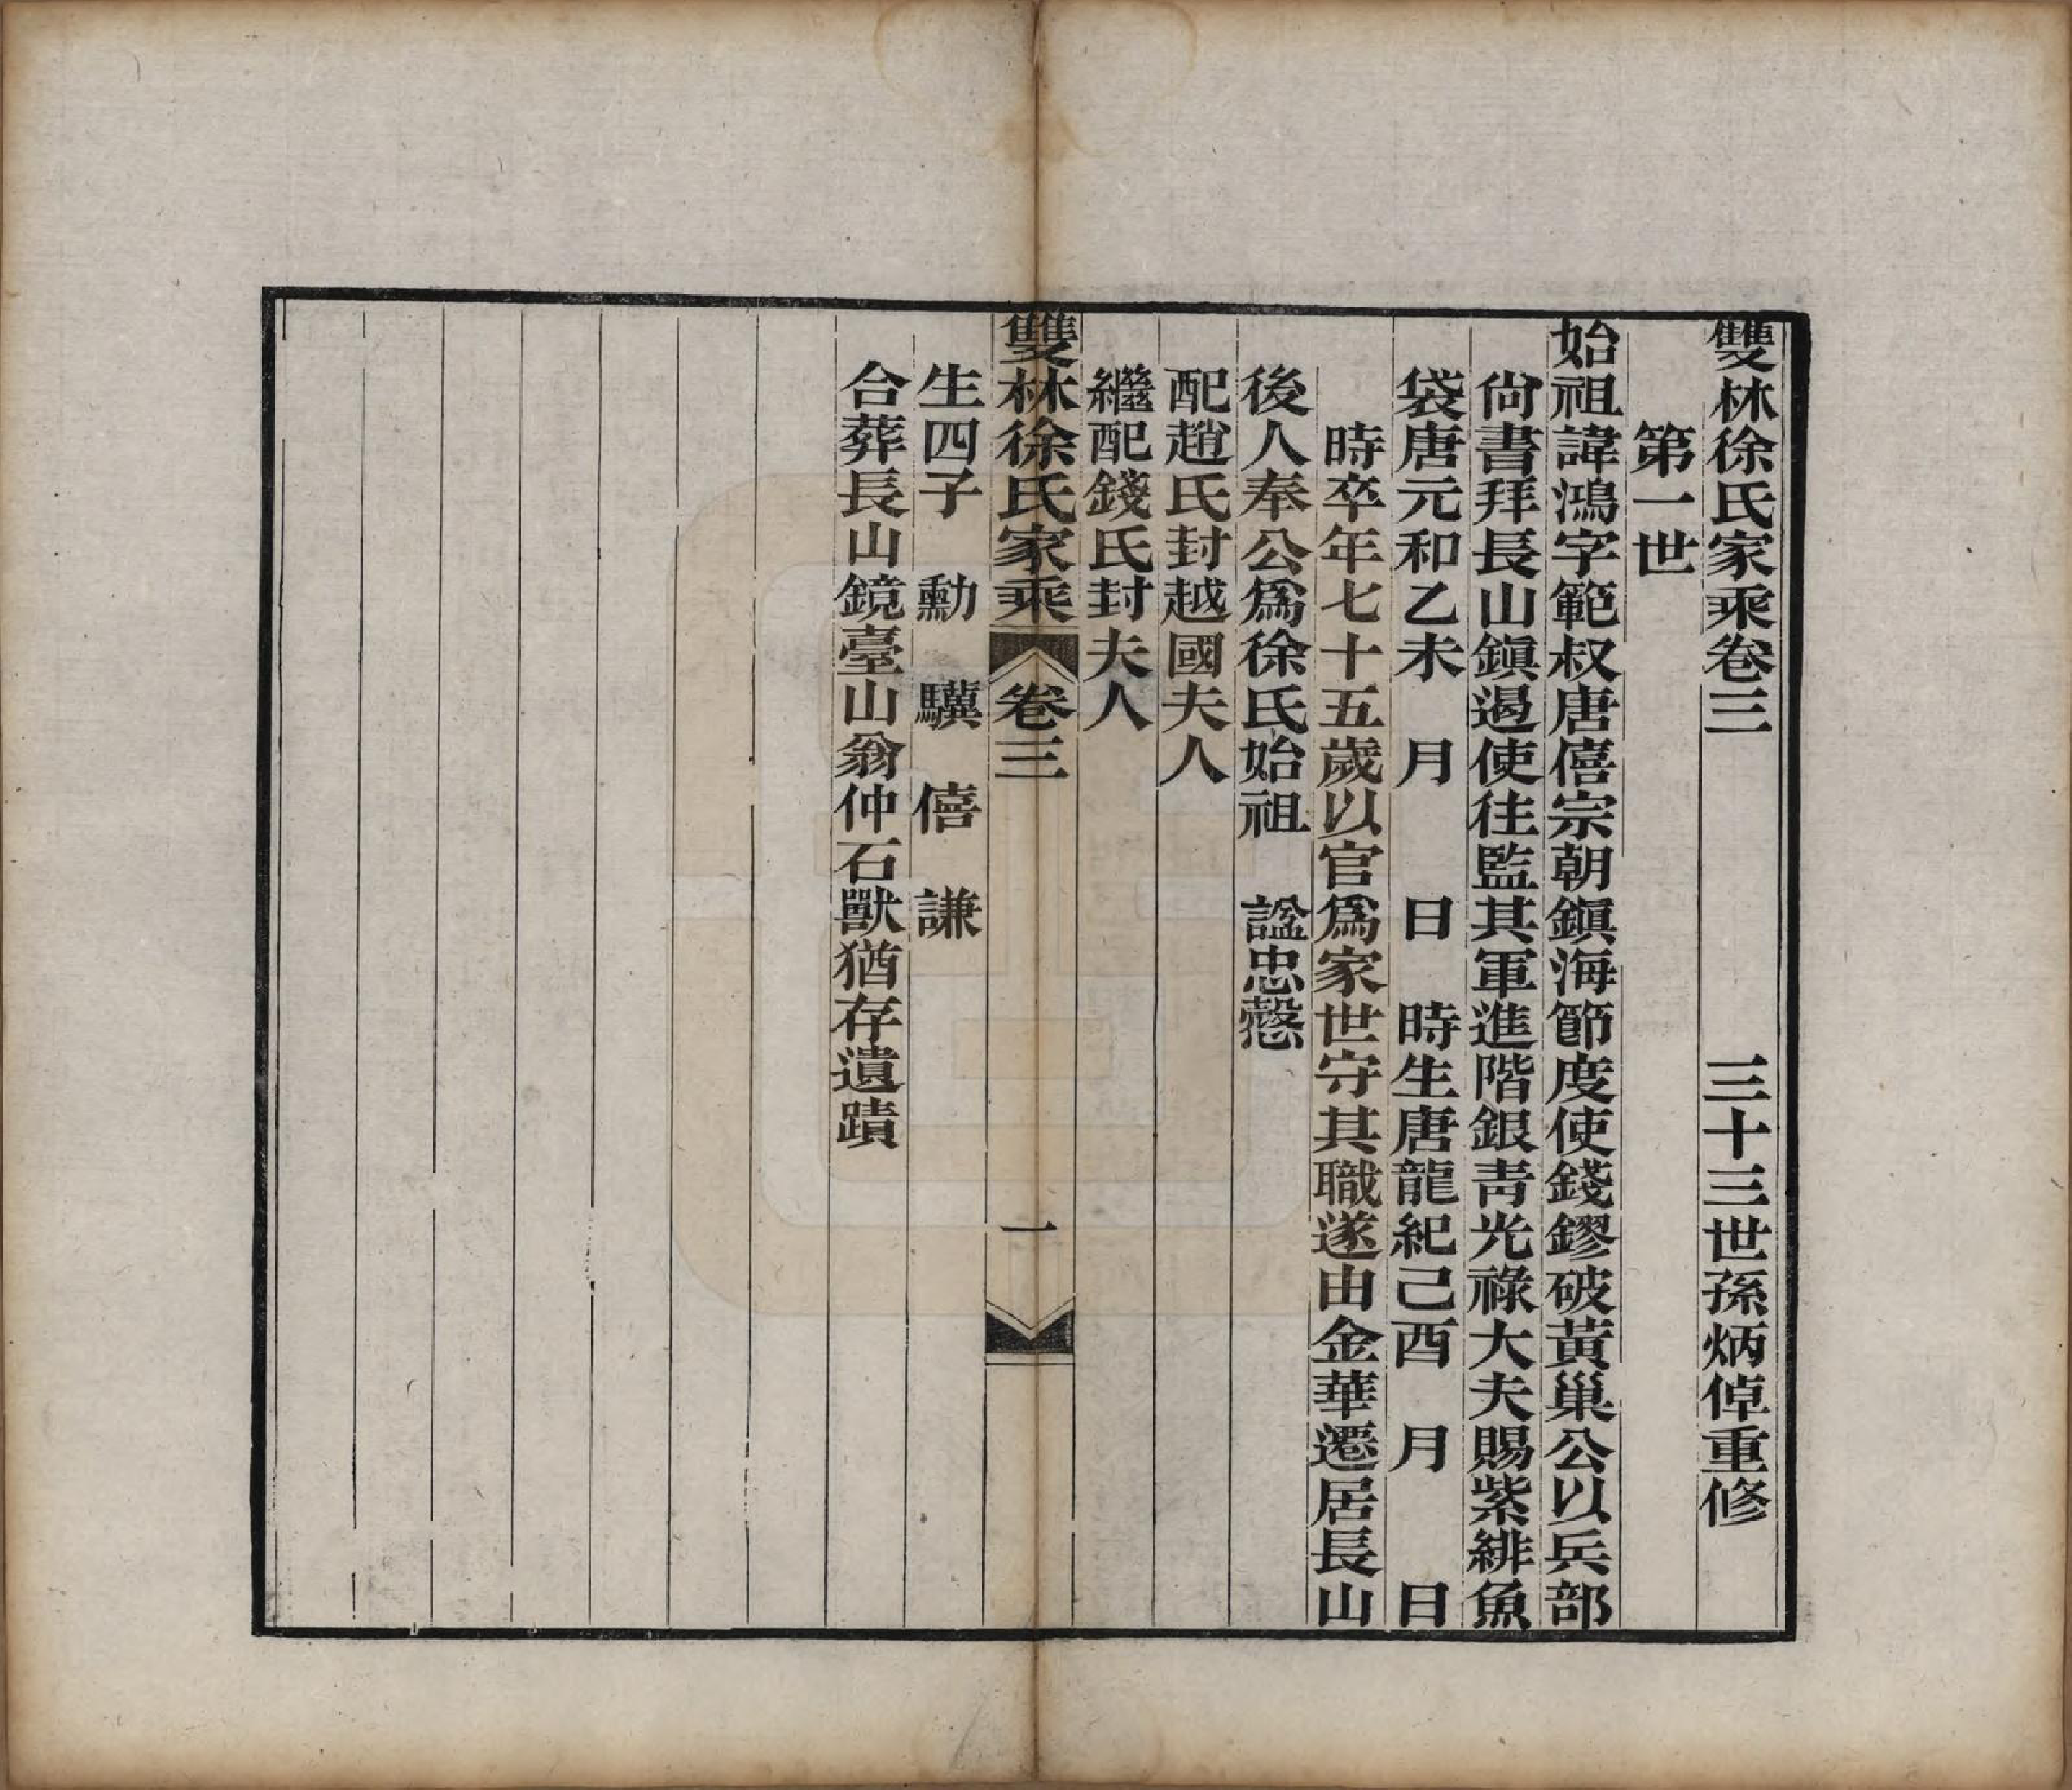 雙林徐氏家乘卷三　　　三十三世孫炳倬重修
第一世
始祖諱鴻字範叔唐僖宗朝鎮海節度使錢鏐破黃巢公以兵部
尚書拜長山鎮遏使往監其軍進階銀青光祿大夫賜紫緋魚
袋唐元和乙未　月　　日　時生唐龍紀己酉　月　　日
時卒年七十五歲以官爲家世守其職遂由金華遷居長山
後人奉公爲徐氏始祖　諡忠慤
配趙氏封越國夫人
繼配錢氏封夫人
雙林徐氏家乘　卷三　一
生四子　勳　驥　僖　謙
合葬長山鏡臺山翁仲石獸猶存遺蹟